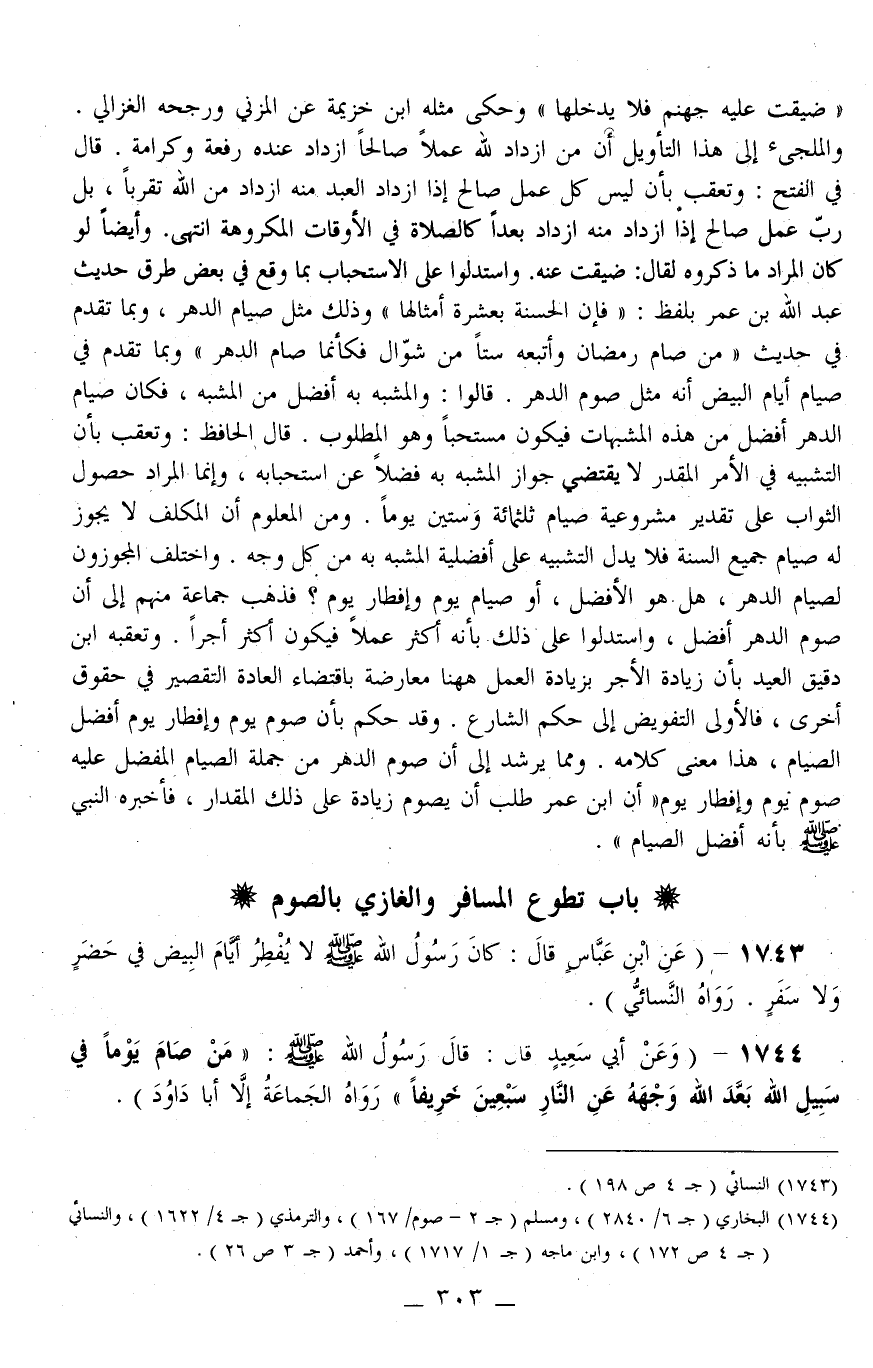 « ضيقت عليه جهنم فلا يدخلها » وحكى مثله ابن خزيمة عن المزني ورجحه الغزالي .
والملجىء إلى هذا التأويل أن من ازداد لله عملاً صالحاً ازداد عنده رفعة وكرامة . قال
في الفتح : وتعقب بأن ليس كل عمل صالح إذا ازداد العبد منه ازداد من الله تقرباً ، بل
ربّ عمل صالح إذا ازداد منه ازداد بعداً كالصلاة في الأوقات المكروهة انتهى. وأيضاً لو
كان المراد ما ذكروه لقال: ضيقت عنه. واستدلوا على الاستحباب بما وقع في بعض طرق حديث
عبد الله بن عمر بلفظ : « فإن الحسنة بعشرة أمثالها » وذلك مثل صيام الدهر ، وبما تقدم
في حديث « من صام رمضان وأتبعه ستاً من شوّال فكأنما صام الدهر » وبما تقدم في
صيام أيام البيض أنه مثل صوم الدهر . قالوا : والمشبه به أفضل من المشبه ، فكان صيام
الدهر أفضل من هذه المشبهات فيكون مستحباً وهو المطلوب . قال الحافظ : وتعقب بأن
التشبيه في الأمر المقدر لا يقتضي جواز المشبه به فضلاً عن استحبابه ، وإنما المراد حصول
الثواب على تقدير مشروعية صيام ثلثمائة وستين يوماً . ومن المعلوم أن المكلف لا يجوز
له صيام جميع السنة فلا يدل التشبيه على أفضلية المشبه به من كل وجه . واختلف المجوزون
لصيام الدهر ، هل هو الأفضل ، أو صيام يوم وإفطار يوم ؟ فذهب جماعة منهم إلى أن
صوم الدهر أفضل ، واستدلوا على ذلك بأنه أكثر عملاً فيكون أكثر أجراً . وتعقبه ابن
دقيق العيد بأن زيادة الأجر بزيادة العمل ههنا معارضة باقتضاء العادة التقصير في حقوق
أخرى ، فالأولى التفويض إلى حكم الشارع . وقد حكم بأن صوم يوم وإفطار يوم أفضل
الصيام ، هذا معنى كلامه . ومما يرشد إلى أن صوم الدهر من جملة الصيام المفضل عليه
صوم يوم وإفطار يوم« أن ابن عمر طلب أن يصوم زيادة على ذلك المقدار ، فأخبره النبي
ﷺ بأنه أفضل الصيام » .
✷ باب تطوع المسافر والغازي بالصوم ✷
١٧٤٣ – ( عَنِ ابْنِ عَبَّاسٍ قالَ : كانَ رَسُولُ الله ﷺ لا يُفْطِرُ أيَّامَ البِيض في حَضَرٍ
وَلا سَفَرٍ . رَوَاهُ النَّسائيُّ ) .
١٧٤٤ – ( وَعَنْ أبي سَعِيدٍ قال : قالَ رَسُولُ الله ﷺ : « مَنْ صَامَ يَوْماً في
سَبِيلِ الله بَعَّدَ الله وَجْهَهُ عَنِ النَّارِ سَبْعِينَ خَرِيفاً » رَوَاهُ الجَماعَةُ إلَّا أبا دَاوُدَ ) .
(١٧٤٣) النسائي ( جـ ٤ ص ١٩٨ ) .
(١٧٤٤) البخاري ( جـ ٦/ ٢٨٤٠ ) ، ومسلم ( جـ ٢ – صوم/ ١٦٧ ) ، والترمذي ( جـ ٤/ ١٦٢٢ ) ، والنسائي
( جـ ٤ ص ١٧٢ ) ، وابن ماجه ( جـ ١/ ١٧١٧ ) ، وأحمد ( جـ ٣ ص ٢٦ ) .
— ٣٠٣ —